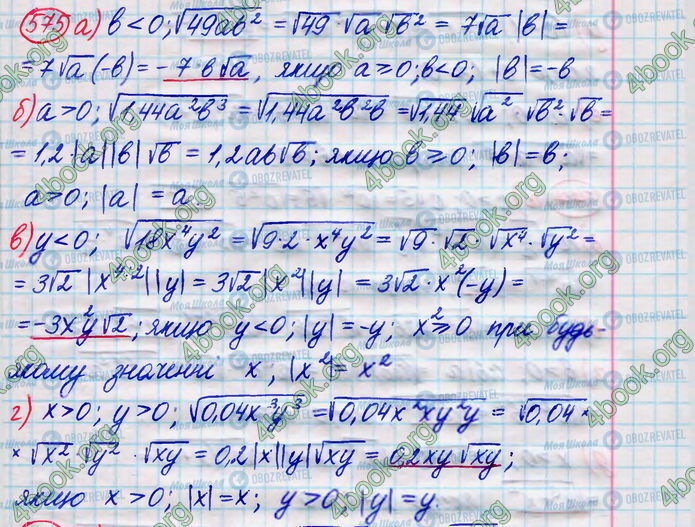 575 а) в < 0; √49ав² = √49 · √а √в² = 7√а |в| =
= 7√а (-в) = -7в√а, якщо а ≥ 0; в < 0; |в| = -в
б) а > 0; √1,44а²в³ = √1,44а²в²в = √1,44 · √а² · √в² · √в =
= 1,2 · |а||в|√в = 1,2ав√в; якщо в ≥ 0; |в| = в;
а > 0; |а| = а.
в) y < 0; √18x⁴y² = √9·2·x⁴y² = √9 · √2 · √x⁴ · √y² =
= 3√2 |x^4:2||y| = 3√2 |x²||y| = 3√2 · x²(-y) =
= -3x²y√2; якщо y < 0; |y| = -y; x² ≥ 0 при будь-
якому значенні x; |x²| = x²
г) x > 0; y > 0; √0,04x³y³ = √0,04x²xy²y = √0,04 ×
× √x² · √y² · √xy = 0,2|x||y|√xy = 0,2xy√xy;
якщо x > 0; |x| = x; y > 0; |y| = y.